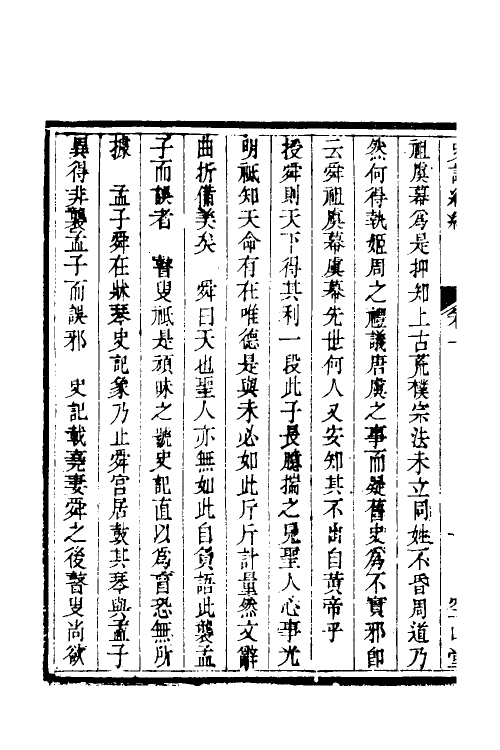 史記糾紕 卷一 十 空山堂
祖虞幕爲是抑知上古荒樸宗法未立同姓不昏周道乃
然何得執姬周之禮議唐虞之事而疑舊史爲不實邪卽
云舜祖虞幕虞幕先世何人又安知其不出自黃帝乎
授舜則天下得其利一段此子長臆揣之見聖人心事光
明祗知天命有在唯德是與未必如此斤斤計量然文辭
曲折備美矣　舜曰天也聖人亦無如此自負語此襲孟
子而誤者　瞽叟祗是頑昧之號史記直以爲盲恐無所
據　孟子舜在牀琴史記象乃止舜宮居鼓其琴與孟子
異得非襲孟子而誤邪　史記載堯妻舜之後瞽叟尚欲